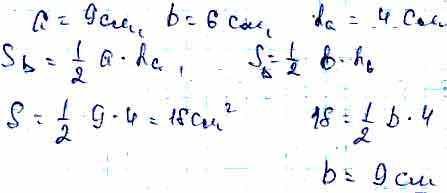 a = 9 см, b = 6 см, ha = 4 см
SΔ = 1/2 a · ha, SΔ = 1/2 · b · hb
S = 1/2 9 · 4 = 18 см² 18 = 1/2 b · 4
b = 9 см